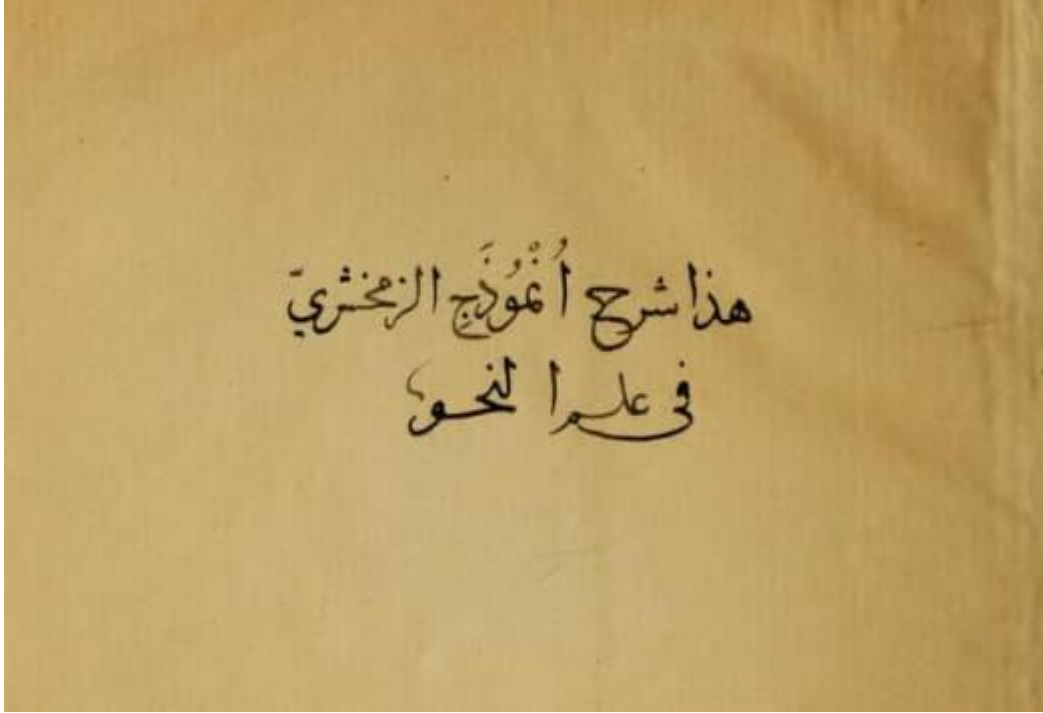 هذا شرح اُنْمُوذَجِ الزمخشريّ
فى علم النحو